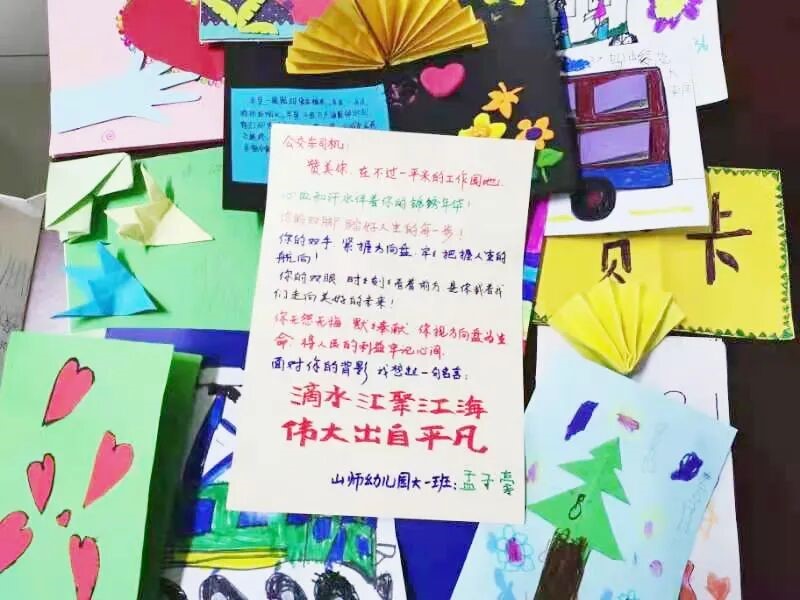 公交车司机：
赞美你，在不过一平米的工作园地！
心血和汗水伴着你的锦绣年华！
你的双脚 踏好人生的每一步！
你的双手 紧握方向盘，牢牢把握人生的
航向！
你的双眼 时时刻刻看着前方 是你载着我
们走向美好的未来！
你无怨无悔 默默奉献 你视方向盘为生
命，将人民的利益牢记心间。
面对你的背影 我想起一句名言：
滴水汇聚江海
伟大出自平凡
山师幼儿园大一班：孟子豪
贺卡
36